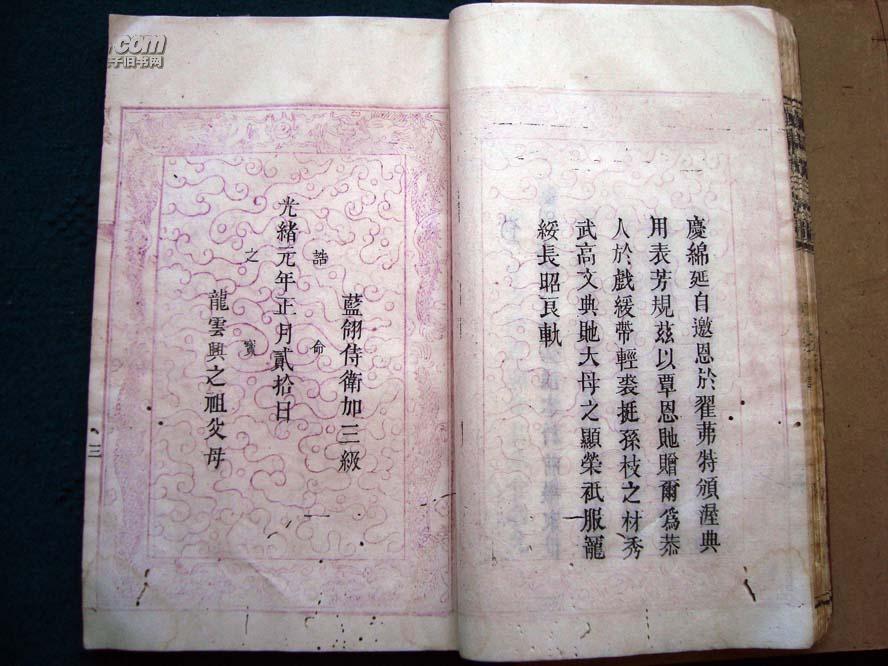 慶綿延自邀恩於翟茀特頒渥典
用表芳規茲以覃恩貤贈爾為恭
人於戲緩帶輕裘挺孫枝之材秀
武高文典貤大母之顯榮祇服寵
綏長昭良軌
藍翎侍衛加三級
誥命
光緒元年正月貳拾日
之寶
龍雲興之祖父母
三
.com
子旧书网